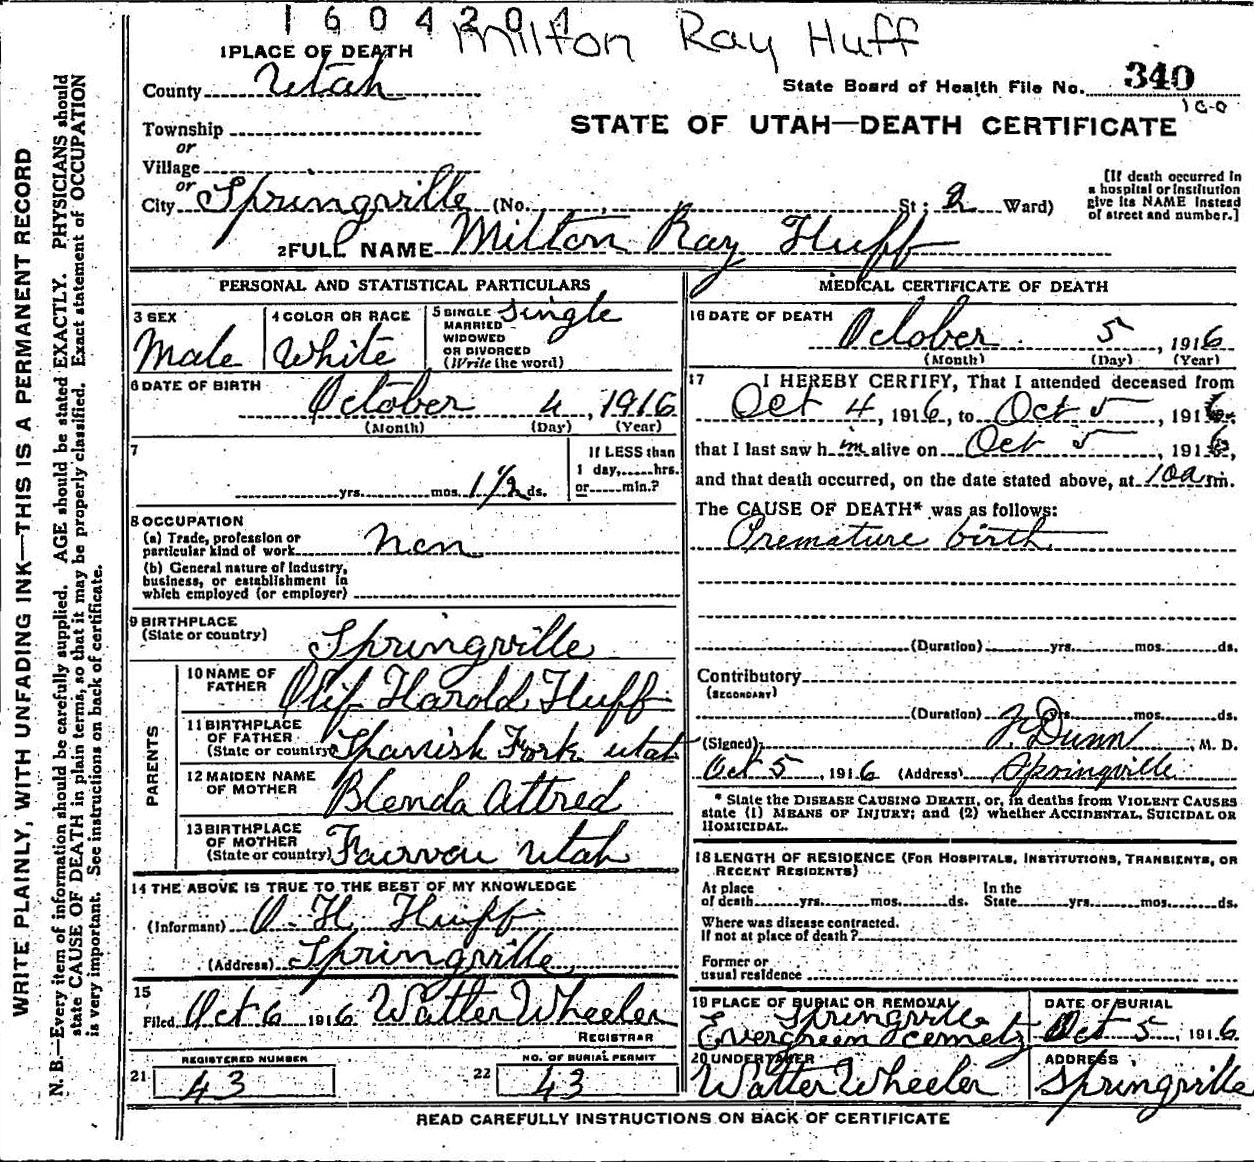 1604201
Milton Ray Huff
1 PLACE OF DEATH
County Utah
State Board of Health File No. 340
160
Township
or
STATE OF UTAH—DEATH CERTIFICATE
Village
or
City Springville (No. St; 2 Ward)
[If death occurred in
a hospital or institution
give its NAME instead
of street and number.]
2 FULL NAME Milton Ray Huff
PERSONAL AND STATISTICAL PARTICULARS
3 SEX
Male
4 COLOR OR RACE
White
5 SINGLE
MARRIED
WIDOWED
OR DIVORCED
(Write the word)
Single
6 DATE OF BIRTH
October 4, 1916
(Month) (Day) (Year)
7
yrs. mos. 1 1/2 ds.
If LESS than
1 day, hrs.
or min.?
8 OCCUPATION
(a) Trade, profession or
particular kind of work non
(b) General nature of industry,
business, or establishment in
which employed (or employer)
9 BIRTHPLACE
(State or country) Springville
PARENTS
10 NAME OF
FATHER Olif Harold Huff
11 BIRTHPLACE
OF FATHER
(State or country) Spanish Fork Utah
12 MAIDEN NAME
OF MOTHER Blenda Allred
13 BIRTHPLACE
OF MOTHER
(State or country) Fairveu Utah
14 THE ABOVE IS TRUE TO THE BEST OF MY KNOWLEDGE
(Informant) O. H. Huff
(Address) Springville
15
Filed Oct 6 1916 Walter Wheeler
REGISTRAR
REGISTERED NUMBER
21 43
NO. OF BURIAL PERMIT
22 43
MEDICAL CERTIFICATE OF DEATH
16 DATE OF DEATH
October 5, 1916
(Month) (Day) (Year)
17 I HEREBY CERTIFY, That I attended deceased from
Oct 4, 1916, to Oct 5, 1916.
that I last saw him alive on Oct 5, 1916,
and that death occurred, on the date stated above, at 10a m.
The CAUSE OF DEATH* was as follows:
Premature birth
(Duration) yrs. mos. ds.
Contributory
(SECONDARY)
(Duration) yrs. mos. ds.
(Signed) F. Dunn, M. D.
Oct 5, 1916 (Address) Springville
* State the DISEASE CAUSING DEATH, or, in deaths from VIOLENT CAUSES
state (1) MEANS OF INJURY; and (2) whether ACCIDENTAL, SUICIDAL OR
HOMICIDAL.
18 LENGTH OF RESIDENCE (FOR HOSPITALS, INSTITUTIONS, TRANSIENTS, OR
RECENT RESIDENTS)
At place
of death yrs. mos. ds.
In the
State yrs. mos. ds.
Where was disease contracted.
If not at place of death?
Former or
usual residence
19 PLACE OF BURIAL OR REMOVAL
Springville
Evergreen Cemety
DATE OF BURIAL
Oct 5, 1916
20 UNDERTAKER
Walter Wheeler
ADDRESS
Springville
READ CAREFULLY INSTRUCTIONS ON BACK OF CERTIFICATE
WRITE PLAINLY, WITH UNFADING INK—THIS IS A PERMANENT RECORD
N. B.—Every item of information should be carefully supplied. AGE should be stated EXACTLY. PHYSICIANS should
state CAUSE OF DEATH in plain terms, so that it may be properly classified. Exact statement of OCCUPATION
is very important. See instructions on back of certificate.